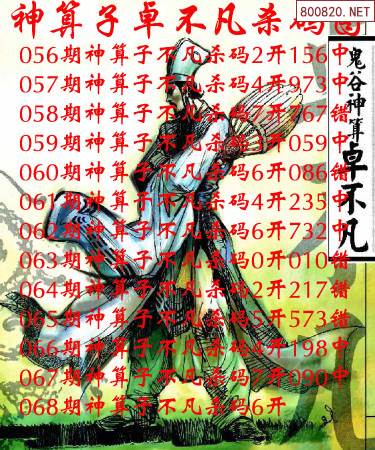 800820.NET
神算子卓不凡杀码图
鬼谷神算
卓不凡
056期神算子不凡杀码2开156中
057期神算子不凡杀码4开973中
058期神算子不凡杀码7开767错
059期神算子不凡杀码3开059中
060期神算子不凡杀码6开086错
061期神算子不凡杀码4开235中
062期神算子不凡杀码6开732中
063期神算子不凡杀码0开010错
064期神算子不凡杀码2开217错
065期神算子不凡杀码5开573错
066期神算子不凡杀码4开198中
067期神算子不凡杀码7开090中
068期神算子不凡杀码6开